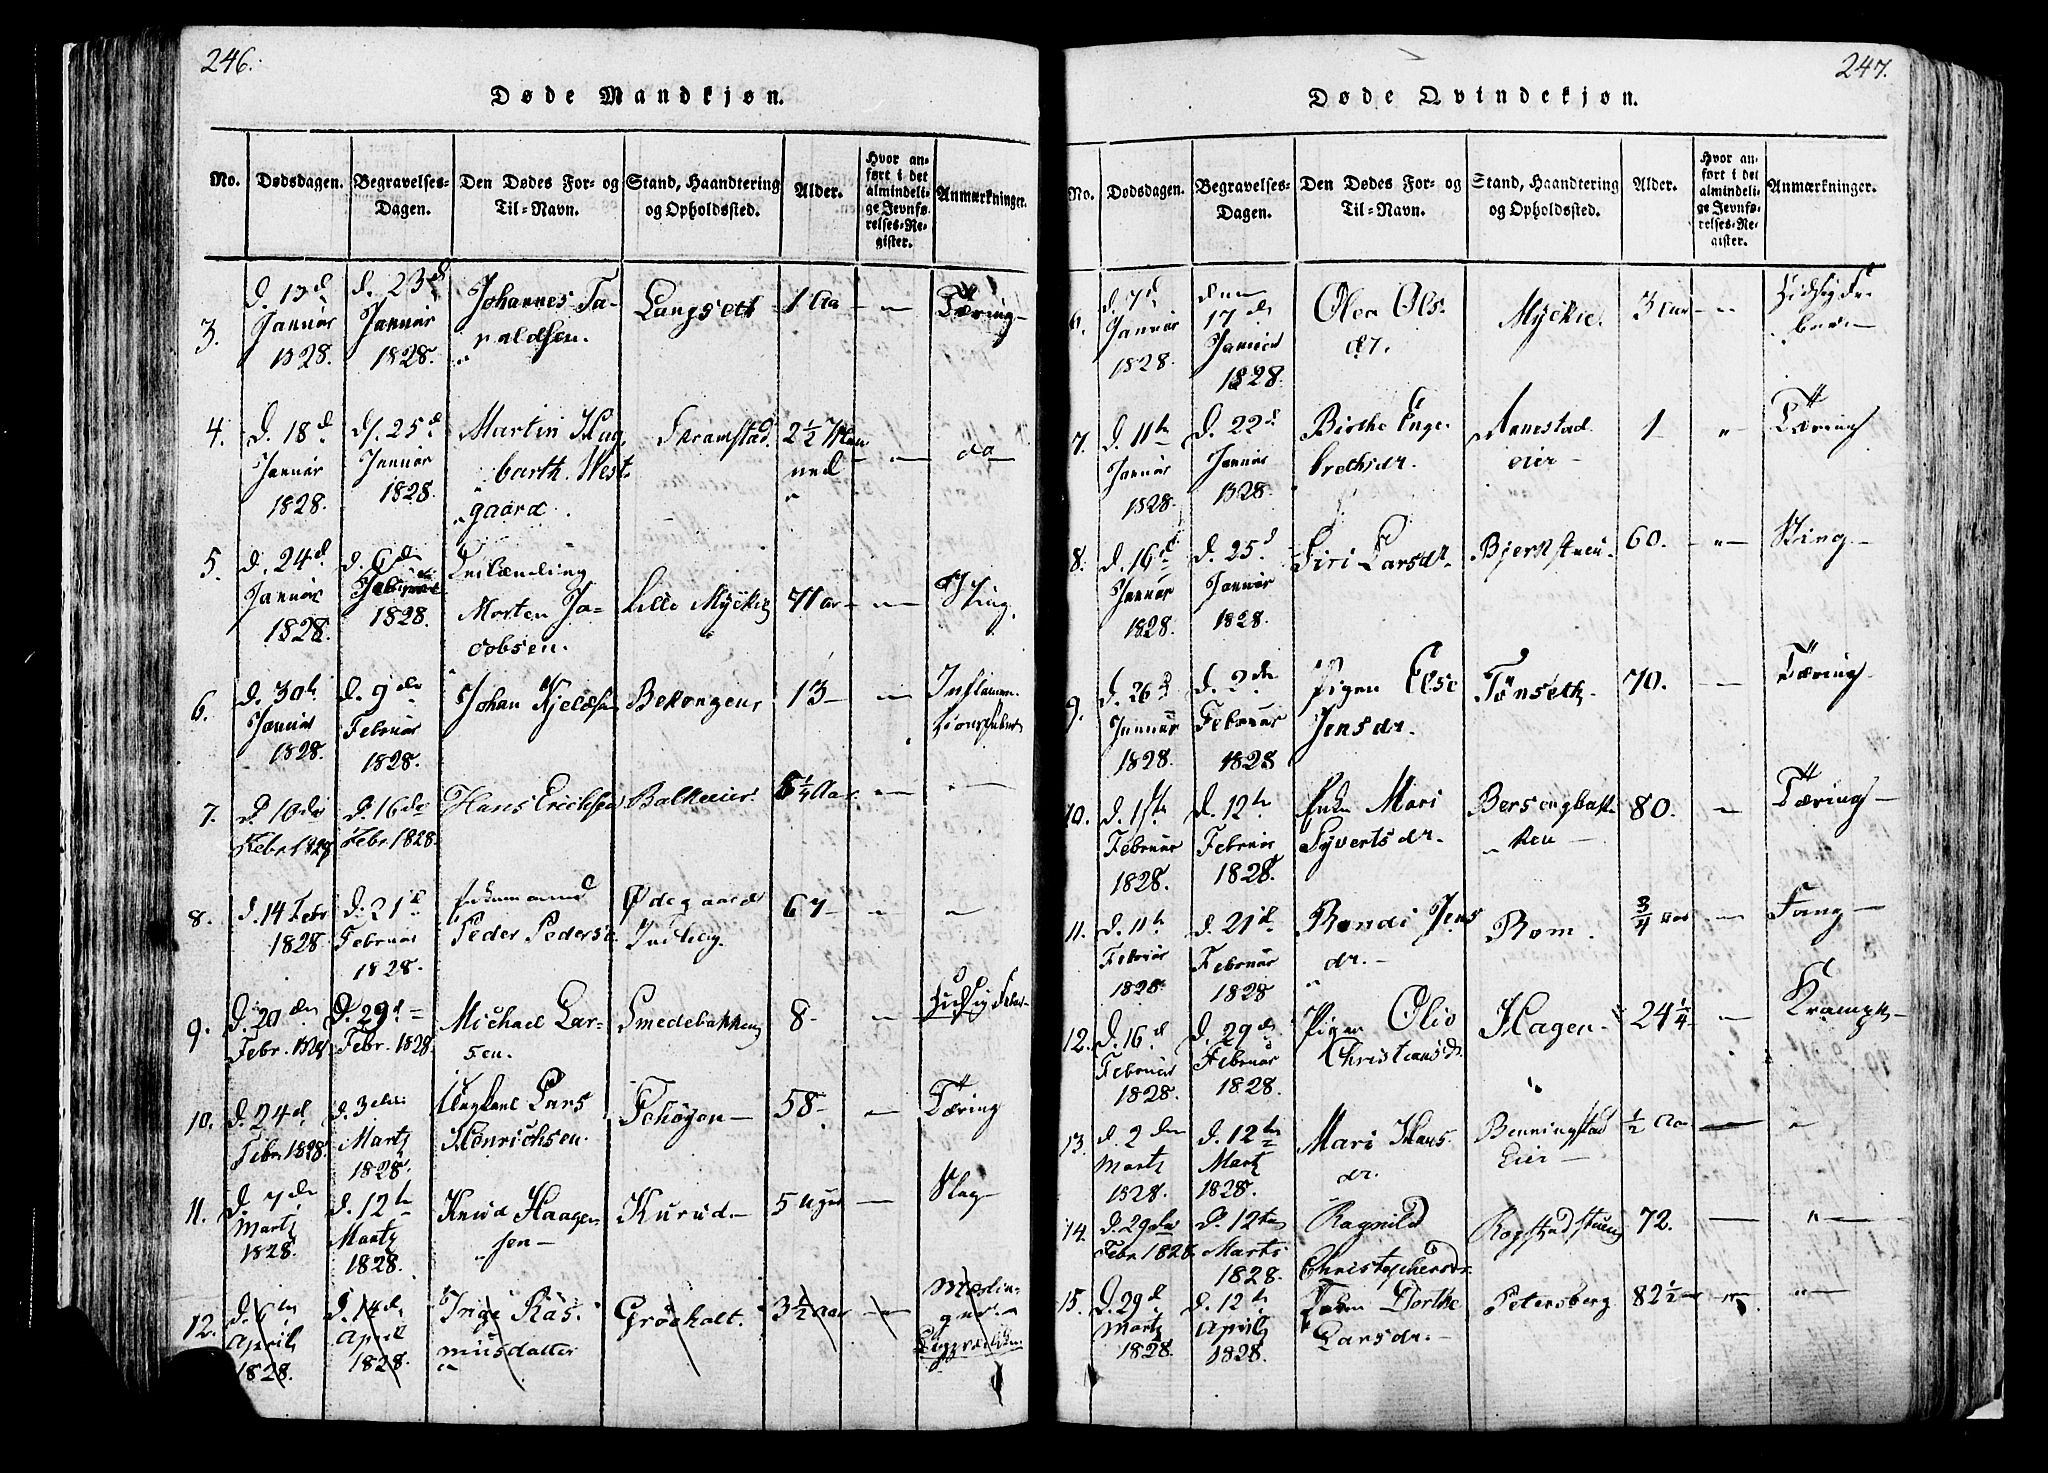 246.
Døde Mandkjøn.
No.
Dødsdagen.
Begravelses-
Dagen.
Den Dødes For- og
Til-Navn.
Stand, Haandtering
og Opholdssted.
Alder.
Hvor an-
ført i det
almindeli-
ge Jevnfø-
relses-Re-
gister.
Anmærkninger.
3.
d. 13d
Januar
1828.
d. 23d
Januar
1828.
Johannes Ta-
raldsen.
Langseth
1 Aa
Tæring
4.
d. 18d
Januar
1828.
d. 25d
Januar
1828.
Martin Hag
barth West-
gaard.
Skramstad
2½
do
5.
d. 24d
Januar
1828.
d. 6d
1828.
Morten Ja-
cobsen.
Lille Myckle
71 ar
Sting.
6.
d. 30h
Januar
1828.
d. 9de
Februar
1828.
Johan Kjeldsen
13
7.
d. 10de
Febr 1828
d. 16de
Febr 1828.
Hans Erichsen
Balkeeier.
¼ Aar
8.
d. 14 Febr
1828.
d. 21d
Februar
1828.
Peder Peders.
Ødegaard
67
9.
d. 20den
Febr. 1828
d. 29d
Febr. 1828.
Michael Lar-
sen.
Smedebakken
8
10.
d. 24d
Febr 1828.
d. 3die
Martz
1828.
Lars
Henrichsen.
58
Tæring
11.
d. 7de
Martz
1828.
d. 12te
Martz
1828.
Knud Haagen-
sen
Kurud
5 uger
Slag
12.
d. 6te
April
1828.
d. 14d
April
1828.
Inge Ras-
musdatter
Grøeholt.
3½ aar
247.
Døde Qvindekjøn.
No.
Dødsdagen.
Begravelses-
Dagen.
Den Dødes For- og
Til-Navn.
Stand, Haandtering
og Opholdssted.
Alder.
Hvor an-
ført i det
almindeli-
ge Jevnfø-
relses-Re-
gister.
Anmærkninger.
6.
d. 7d
Januar
1828.
den
17de
Januar
1828.
Olea Ols-
dr.
Myckle.
3 aar
7.
d. 11te
Januar
1828.
d. 22d
Januar
1828.
Birthe Enge-
brethsdr.
Aanestad
eier
1
Tæring
8.
d. 16d
Januar
1828.
d. 25d
Januar
1828.
Siri Larsdr.
60.
Sting
9.
d. 26d
Januar
1828.
d. 2den
Februar
1828
Pigen Else
Jensdr.
Tønseth
70.
Tæring
10.
Februar
1828.
d. 12te
Februar
1828.
Enke Mari
Syvertsdr.
Bersengbak-
ken
80.
Tæring
11.
d. 11te
Februar
1828.
d. 21d
Februar
1828
Randi Jens
dr.
Rom.
¾ aar
12.
d. 16d
Februar
1828.
d. 29de
Februar
1828.
Pigen Olio
Christiansdr.
Hagen
24¼
Krampe
13.
d. 2den
Martz
1828.
d. 12te
Martz
1828.
Mari Hans-
dr.
Benningstad
Eier
½ Aa
14.
d. 29de
Febr 1828.
d. 12te
Marts
1828.
Ragnild
Christophersdr.
72.
15.
d. 29d
Martz
1828.
d. 12te
April
1828.
Dorthe
Larsdr.
Petersberg
82½